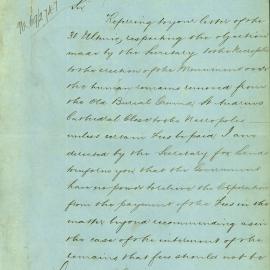 Sir
Referring to your letter of the
31 Ultimo, respecting the objection
made by the Secretary to the Necropolis
to the erection of the Monument over
the human remains removed from
the Old Burial Ground, St Andrews
Cathedral Close to the Necropolis
unless certain fees be paid I am
directed by the Secretary for Lands
to inform you that the Government
have no power to relieve the Corporation
from the payment of the fees in the
matter beyond recommending as in
the case of the interment of the
remains that fees should not be